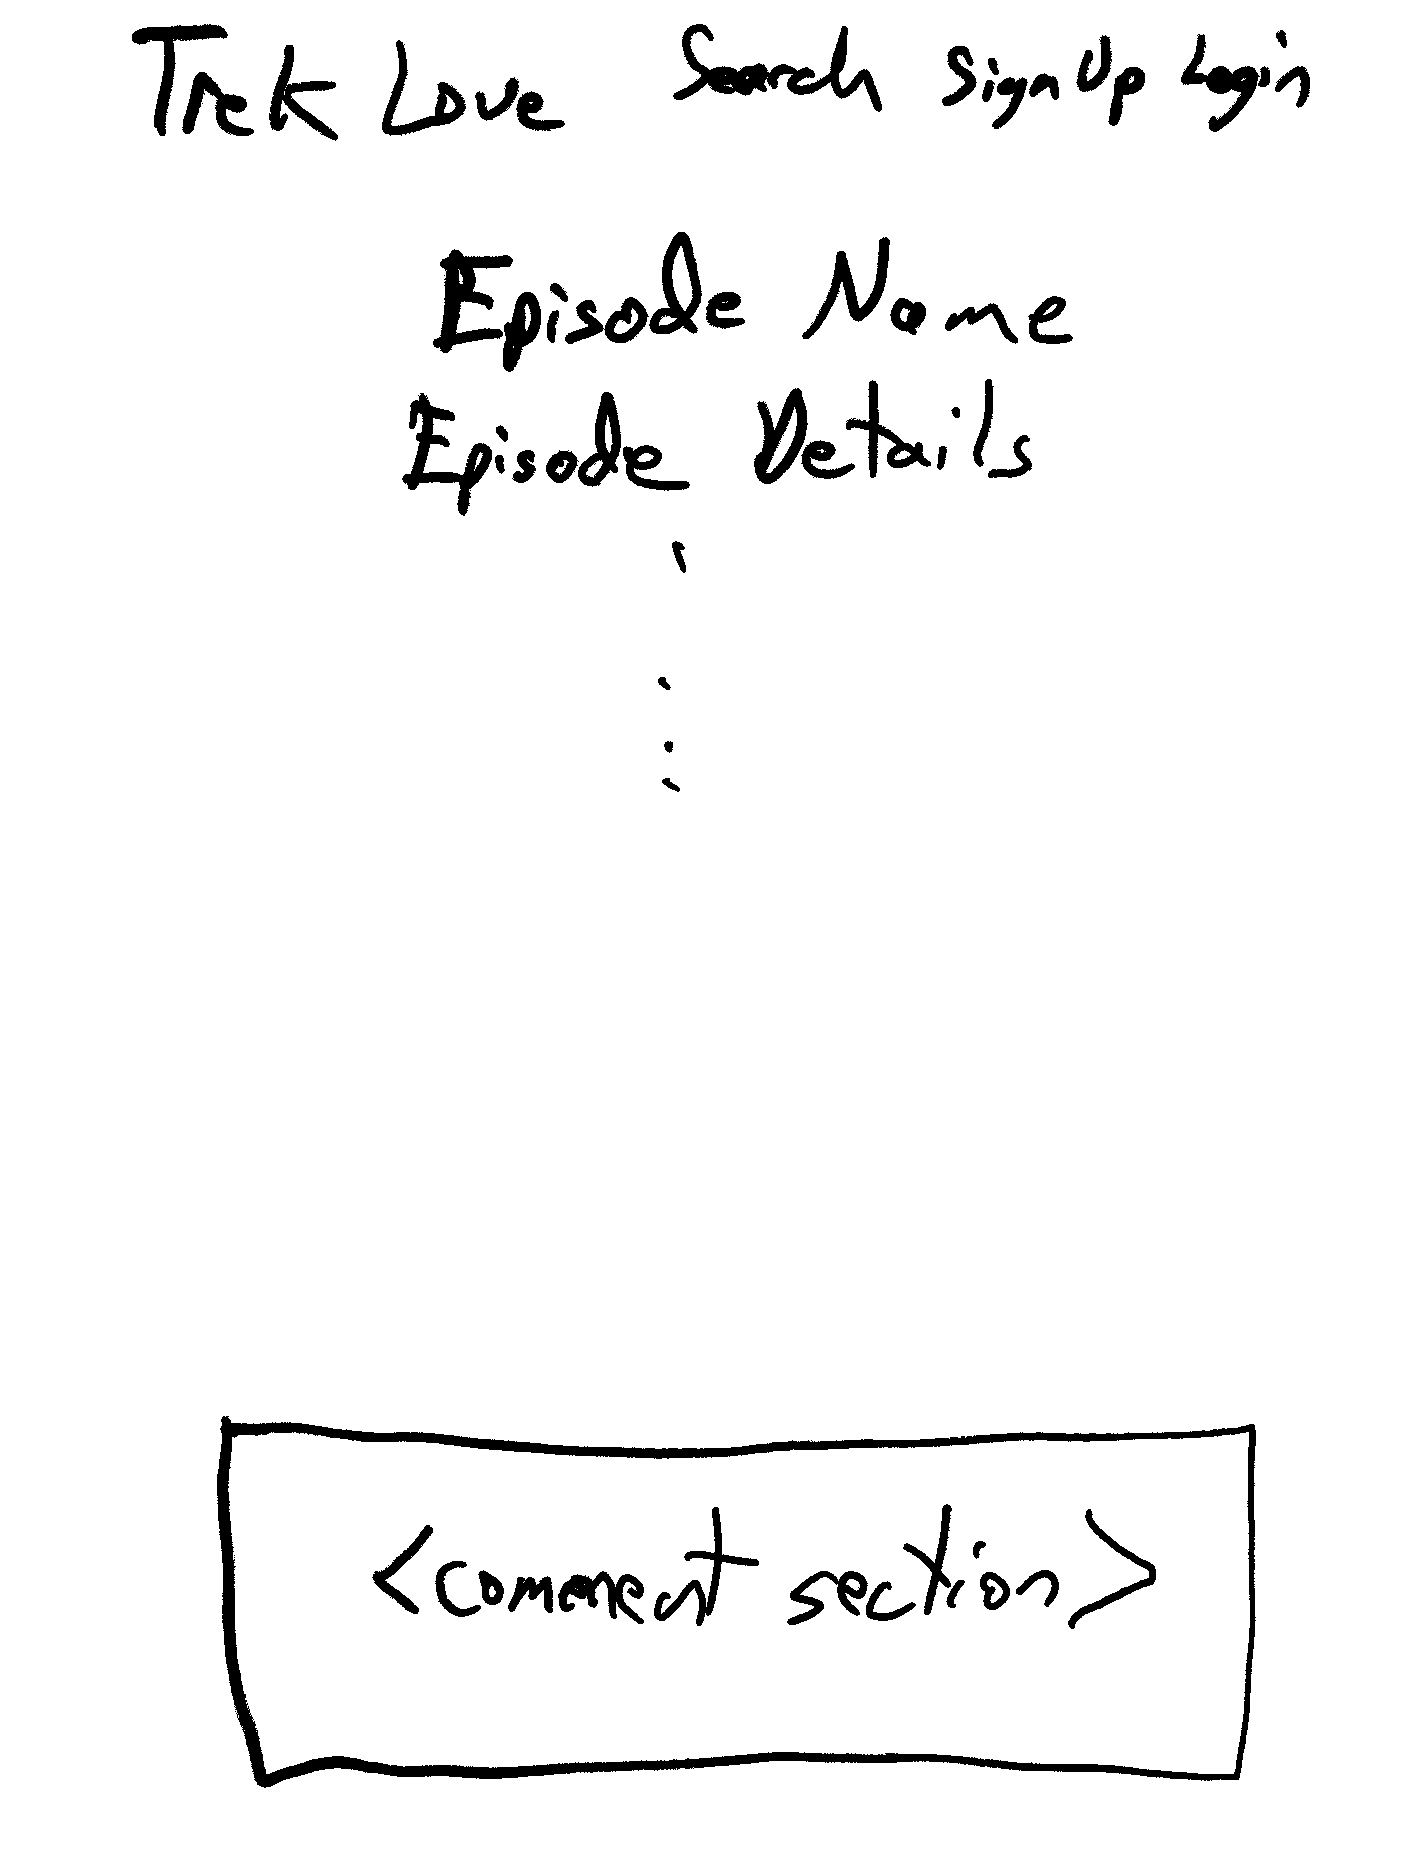 Trek Love Search Sign Up Login
Episode Name
Episode Details
<comment section>